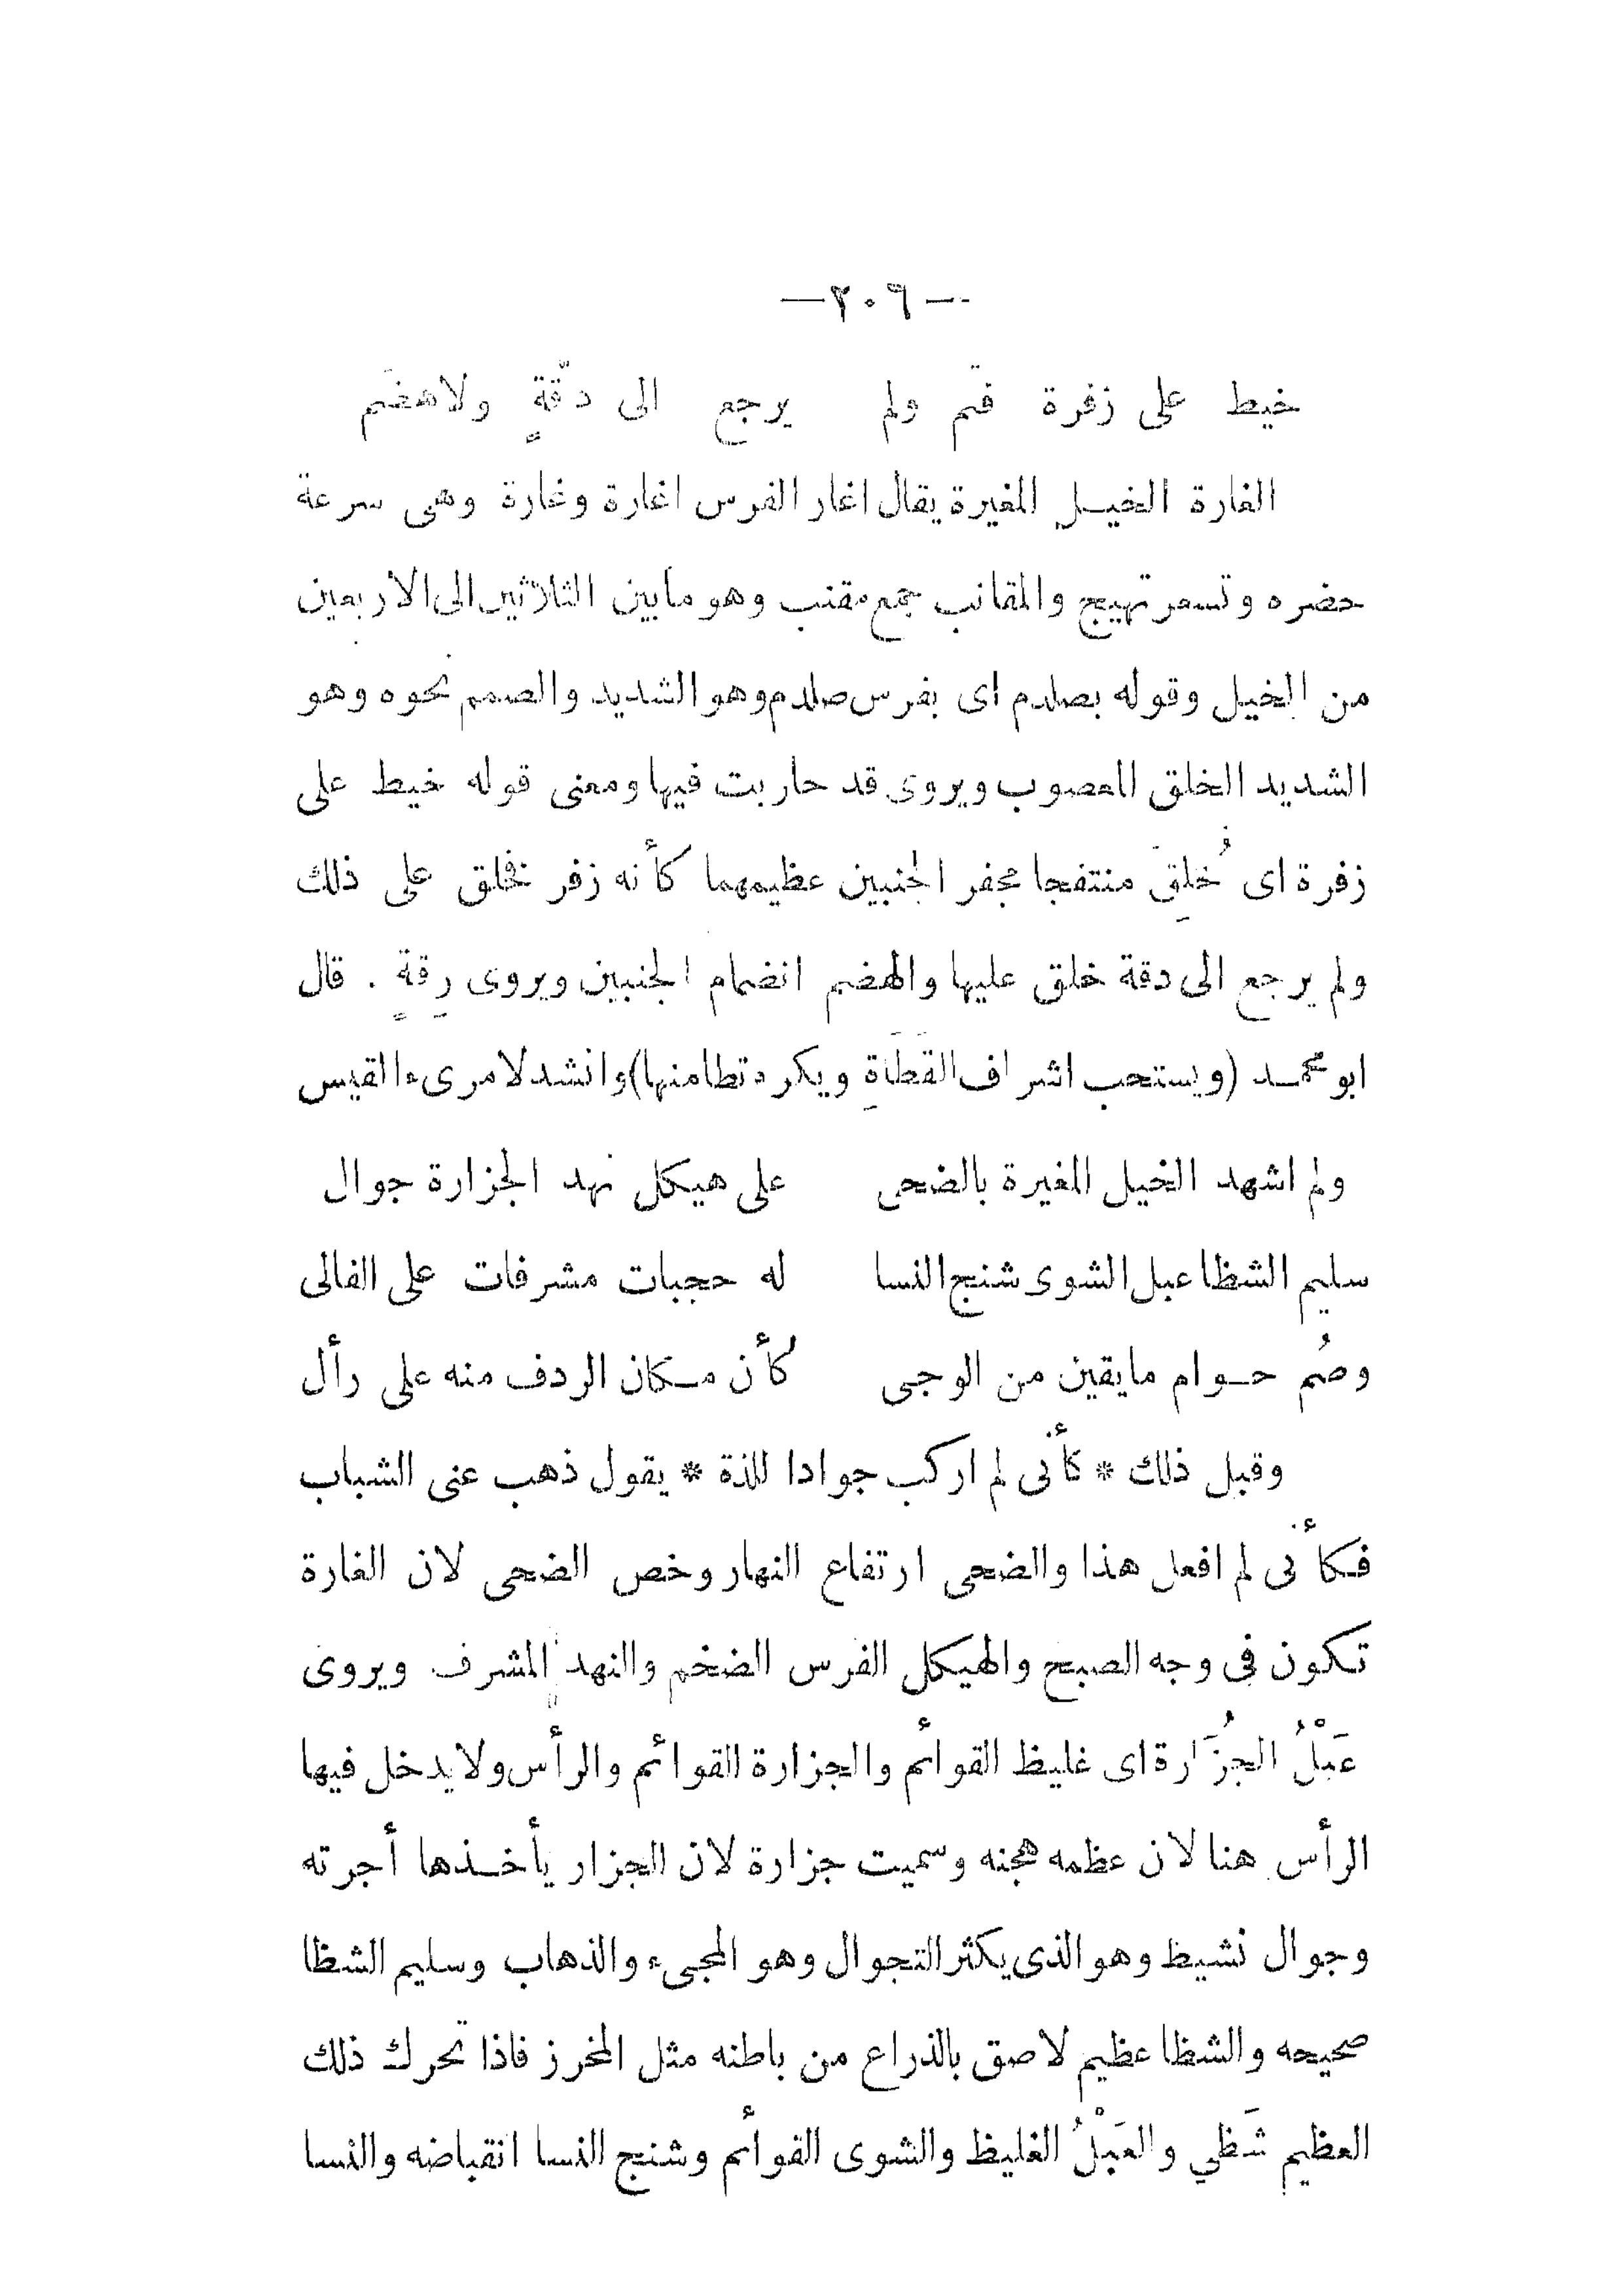 —٢٠٦—
خيط على زفرة فتم ولم يرجع الى دقّةٍ ولاهضم
الغارة الخيل المغيرة يقال اغار الفرس اغارة وغارة وهى سرعة
حضره وتسعر تهيج والمقانب جمع مقنب وهو مابين الثلاثين الى الاربعين
من الخيل وقوله بصلدم اى بفرس صلدم وهو الشديد والصمم نحوه وهو
الشديد الخلق المعصوب ويروى قد حاربت فيها ومعنى قوله خيط على
زفرة اى خُلِقَ منتفجا مجفر الجنبين عظيمهما كأنه زفر فخلق على ذلك
ولم يرجع الى دقة خلق عليها والهضم انضمام الجنبين ويروى رِقةٍ . قال
ابو محمد (ويستحب اشراف القَطَاةِ ويكره تطامنها) وانشد لامرىء القيس
ولم اشهد الخيل المغيرة بالضحى على هيكل نهد الجزارة جوال
سليم الشظا عبل الشوى شنج النسا له حجبات مشرفات على الفالى
وصُم حوام مايقين من الوجى كأن مكان الردف منه على رأل
وقبل ذلك * كأنى لم اركب جوادا للذة * يقول ذهب عنى الشباب
فكأنى لم افعل هذا والضحى ارتفاع النهار وخص الضحى لان الغارة
تكون فى وجه الصبح والهيكل الفرس الضخم والنهد المشرف ويروى
عَبْلُ الجُزَارة اى غليظ القوائم والجزارة القوائم والرأس ولايدخل فيها
الرأس هنا لان عظمه هجنه وسميت جزارة لان الجزار يأخذها أجرته
وجوال نشيط وهو الذى يكثر التجوال وهو المجىء والذهاب وسليم الشظا
صحيحه والشظا عظيم لاصق بالذراع من باطنه مثل المخرز فاذا تحرك ذلك
العظيم شَظي والعَبْلُ الغليظ والشوى القوائم وشنج النسا انقباضه والنسا